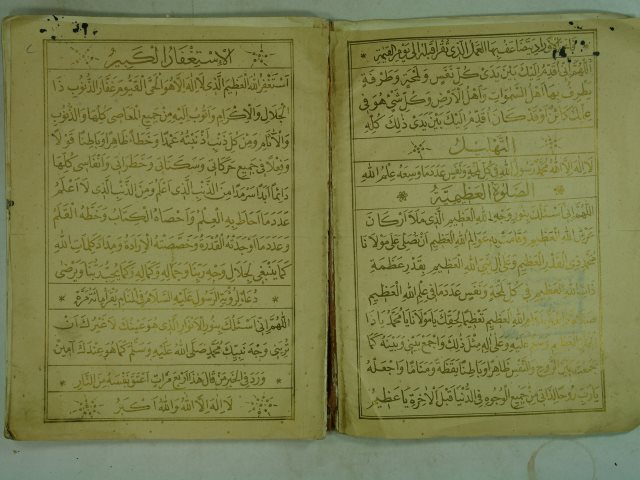 الأوراد تضاعف بها العمل الذي تقرأ قبله إلى يوم القيمة
اللهم إني أقدم إليك بين يدي كل نفس ولمحة وطرفة
يطرف بها أهل السموات وأهل الأرض وكل شيء هو في
علمك كائن أو قد كان أقدم إليك بين يدي ذلك كله
التهليل
لا إله إلا الله محمد رسول الله في كل لمحة ونفس عدد ما وسعه علم الله
الصلوة العظيمية
اللهم إني أسئلك بنور وجه الله العظيم الذي ملأ أركان
عرش الله العظيم وقامت به عوالم الله العظيم أن تصلي على مولانا
محمد ذي القدر العظيم وعلى آل نبي الله العظيم بقدر عظمة
ذات الله العظيم في كل لمحة ونفس عدد ما في علم الله العظيم
الله العظيم تعظيما لحقك يا مولانا يا محمد يا ذا
وسلم عليه وعلى آله مثل ذلك واجمع بيني وبينه كما
جمعت بين الروح والنفس ظاهرا وباطنا يقظة ومناما واجعله
يا رب روحا لذاتي من جميع الوجوه في الدنيا قبل الآخرة يا عظيم
الاستغفار الكبير
أستغفر الله العظيم الذي لا إله إلا هو الحي القيوم غفار الذنوب ذا
الجلال والإكرام وأتوب إليه من جميع المعاصي كلها والذنوب
والآثام ومن كل ذنب أذنبته عمدا وخطأ ظاهرا وباطنا قولا
وفعلا في جميع حركاتي وسكناتي وخطراتي وأنفاسي كلها
دائما أبدا سرمدا من الذنب الذي أعلم ومن الذنب الذي لا أعلم
عدد ما أحاط به العلم وأحصاه الكتاب وخطه القلم
وعدد ما أوجدته القدرة وخصصته الإرادة ومداد كلمات الله
كما ينبغي لجلال وجه ربنا وجماله وكماله وكما يحب ربنا ويرضى
دعاء لرؤية الرسول عليه السلام في المنام تقرأ مائة مرة
اللهم إني أسئلك بنور الأنوار الذي هو عينك لا غيرك أن
تريني وجه نبيك محمد صلى الله عليه وسلم كما هو عندك آمين
ورد في الخبر من قال هذا أربع مرات أعتق نفسه من النار
لا إله إلا الله والله أكبر